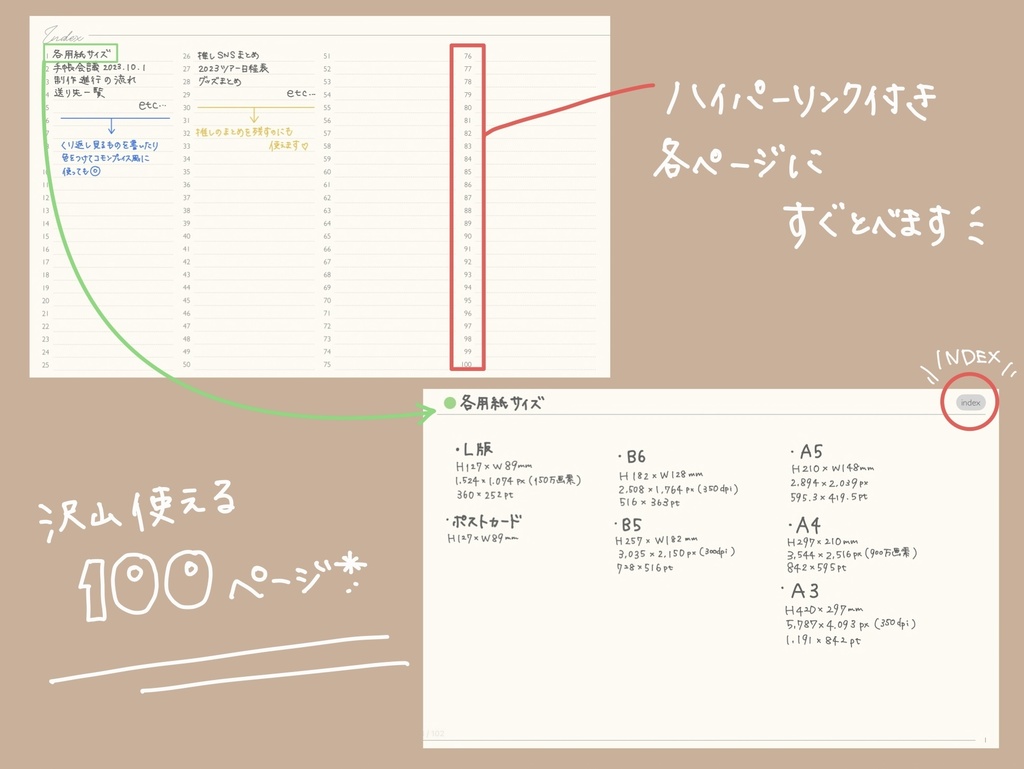 Index
1 各用紙サイズ
2 手帳会議 2023.10.1
3 制作進行の流れ
4 送り先一覧
5 etc…
6
7
くり返し見るものを書いたり
色をつけてコモンプレイス風に
10 使っても◎
11
12
13
14
15
16
17
18
19
20
21
22
23
24
25
26 推しSNSまとめ
27 2023ツアー日程表
28 グッズまとめ
29 etc…
30
31
32 推しのまとめを残すのにも
33 使えます♡
34
35
36
37
38
39
40
41
42
43
44
45
46
47
48
49
50
51
52
53
54
55
56
57
58
59
60
61
62
63
64
65
66
67
68
69
70
71
72
73
74
75
76
77
78
79
80
81
82
83
84
85
86
87
88
89
90
91
92
93
94
95
96
97
98
99
100
ハイパーリンク付き
各ページに
すぐとべます
INDEX
各用紙サイズ
index
・L版
H127×W89mm
1.524×1.074px(150万画素)
360×252pt
・ポストカード
H127×W89mm
・B6
H182×W128mm
2.508×1.764px(350dpi)
516×363pt
・B5
H257×W182mm
3,035×2,150px(300dpi)
728×516pt
・A5
H210×W148mm
2.894×2.039px
595.3×419.5pt
・A4
H297×210mm
3,544×2,516px(900万画素)
842×595pt
・A3
H420×297mm
5,787×4.093px(350dpi)
1.191×842pt
/102
1
沢山使える
100ページ*